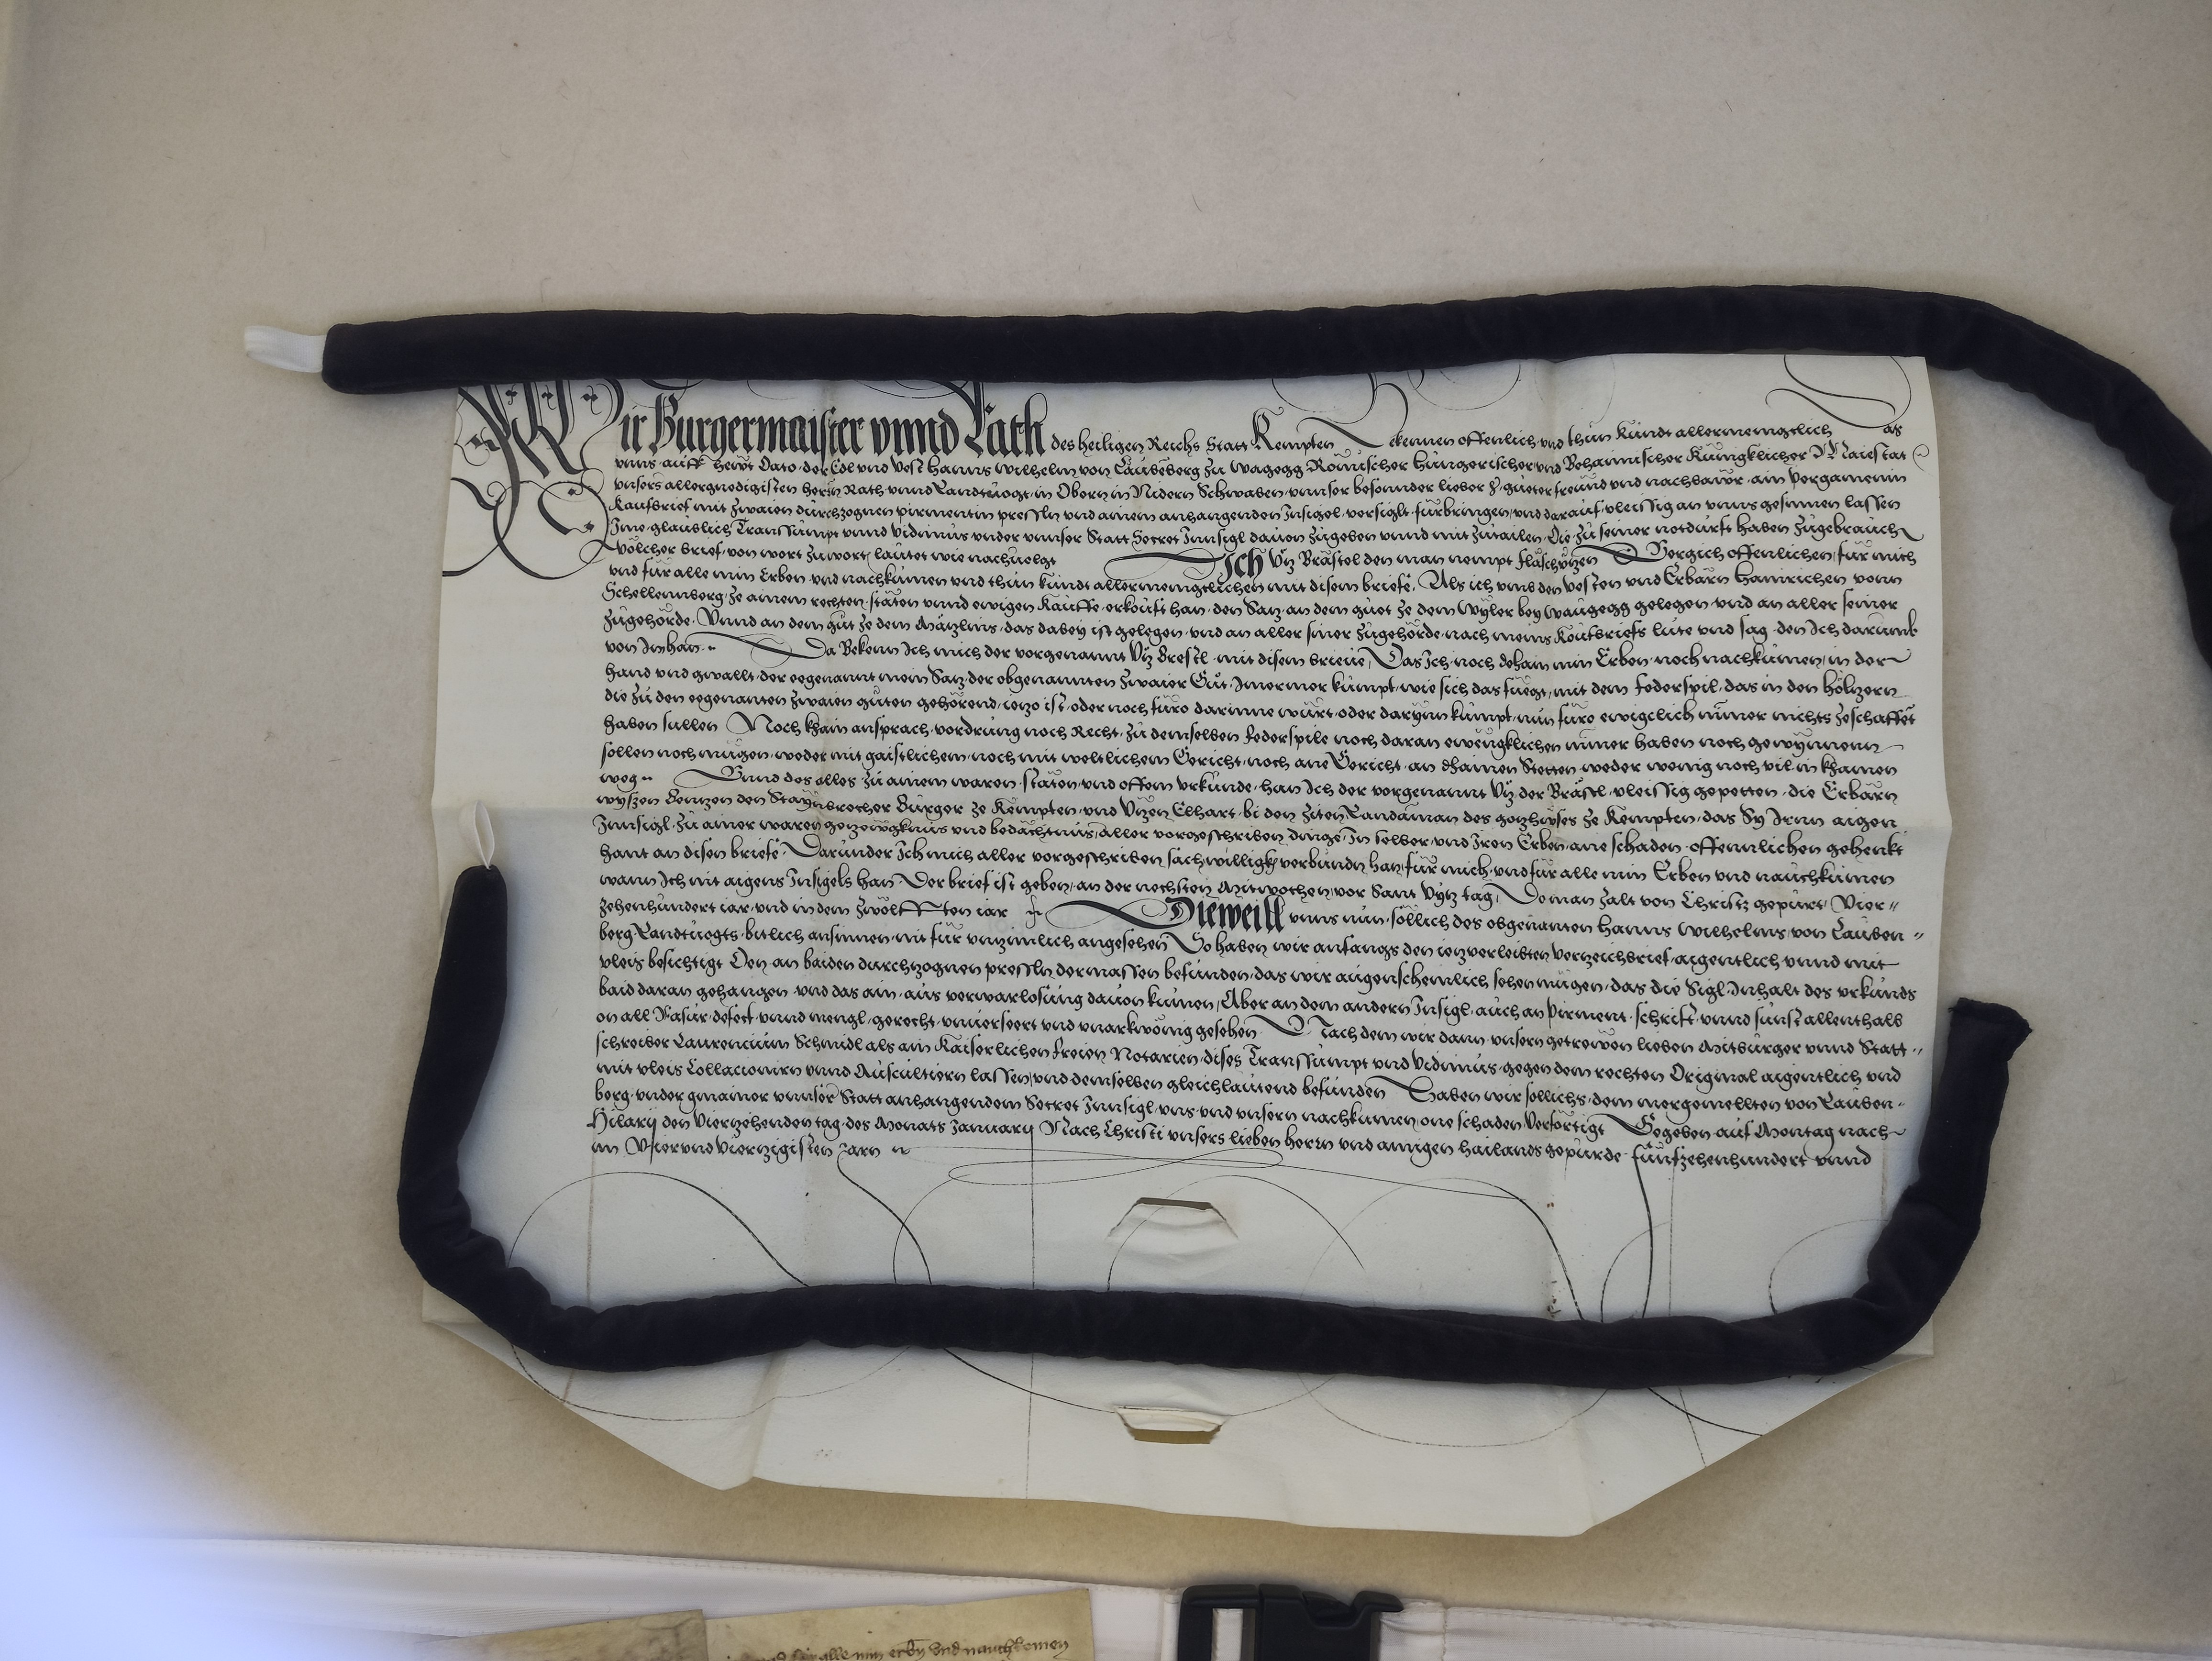 Wir Burgermaister vnnd Rath des heiligen Reichs Statt Kempten Bekennen offenlich vnd thun kundt allermenigclich Das
vnns auff heüt Dato der Edl vnd Vest Hanns Wilhelm von Laubeberg zu Wagegg Römischer Hungerischer vnd Behaimischer Künigklicher Maiestat
vnsers allergnedigisten herrn Rath vnnd Landtuogt in Obern in Nidern Schwaben vnnser besonnder lieber vnd guter freund vnd nachbawr ain Pergamenin
Kaufbrief mit zwaien durchzognen pirmentin pressln vnd ainem anhangenden Insigel versiglt fürbringen vnd darauf vleissig an vnns gesinnen lassen
Ime glaublich Transsumpt vnnd Vidimus vnder vnnser Statt Secret Innsigl dauon zugeben vnnd mitzutailen Die zu seiner notdurft haben zugebrauch
Wölcher brief von wort zu wort lautet wie nachuolgt Ich Vtz Brästel den man nempt Fläschützen Vergich offenlichen für mich
vnd für alle min Erben vnd nachkumen vnd thun kundt allermengclichen mit disem briefe Als ich vmb den Vesten vnd Erbarn Hainrichen vonn
Schellennberg ze ainem rechten stäten vnnd ewigen Kauffe erkouft han den Satz an dem guet ze dem Wyler bey Waugegg gelegen vnd an aller seiner
zugehörde Vnnd an dem gut ze dem Mätzlins das dabey ist gelegen vnd an aller siner zugehörde nach meins Koufbriefs lute vnd sag den Ich darumb
von Im han Da Bekenn Ich mich der vorgenannt Vtz Brestl mit disem brieue Das Ich noch dehain min Erben noch nachkumen in der
hand vnd gwallt der eegenannt mein Satz der obgenannten zwaier Gut Imermer kumpt wie sich das fuegt mit dem Federspil das in den höltzern
die zu den eegenanten zwaien guten gehörend ietzo ist oder noch füro darinne würt oder daryn kumpt nun füro ewigclich nimer nichts zeschaffet
haben sullen Noch khain ansprach vordrung noch Recht zu demselben Federspile noch daran eweugklichen nimer haben noch gewynnenn
sollen noch mugen weder mit gaistlichem noch mit weltlichem Gericht noch ane Gericht an dhainen Stetten weder wenig noch vil in khainen
weg Vnnd des alles zu ainem waren stäten vnd offem vrkunde han Ich der vorgenannt Vtz der Brästl vleissig gepetten die Erbarn
wyszen Bentzen den Stayinbrecher Burger ze Kempten vnd Vtzen Elhart bi den ziten Landaman des gotzhuses ze Kempten das Sy Irnn aigen
Innsigl zu ainer waren gezeugknus vnd bedächtnus aller vorgeschriben dinge In selber vnd Iren Erben ane schaden offennlichen gehenkt
hant an disen briefe Darunder Ich mich aller vorgeschriben sach willigkl verbundn han für mich vnd für alle min Erben vnd nauchkumen
wann Ich nit aigens Insigels han Der brief ist geben an der nechsten Mitwochen vor Sant Vytz tag Do man zalt von Christz gepurt Vier
zehenhundert iar vnd in dem zwölfften iar Dieweill vnns nun söllich des obgenanten Hanns Wilhelms von Lauben
berg Landtuogts bitlich ansinnen nit für vnzimlich angesehen So haben wir anfangs den ietzverleibten Verzeichbrief aigentlich vnnd mit
vleis besichtigt Den an baiden durchzognen pressln dermassen befunden das wir augenscheinlich sehen mügen das die Sigl Inhalt des vrkunds
baid daran gehangen vnd das ain aus verwarlosung dauon kumen Aber an dem andern Insigl auch an Pirment schrift vnnd sunst allenthalb
on all Rasur defect vnnd mengl gerecht vnuerseert vnd vnarkwönig gesehen Nach dem wir dann vnsern getrewen lieben Mitburger vnnd Statt
schreiber Laurencium Schmidl als ain Kaiserlichen freien Notarien dises Transsumpt vnd Vidimus gegen dem rechten Original aigentlich vnd
mit vleis Collacioniern vnnd Auscultiern lassen vnd demselben gleichlautend befunden Haben wir söllichs dem mergemellten von Lauben
berg vnder gmainer vnnser Statt anhangendem Secret Innsigl vns vnd vnsern nachkumen one schaden Verfertigt Gegeben auf Montag nach
Hilarij den Vierzehenden tag des Monats January Nach Christi vnsers lieben herrn vnd ainigen hailands gepurde fünfzehenhundert vnnd
im Vier vnd Viertzigisten Jarn
alle min erben vnd nauchkomen